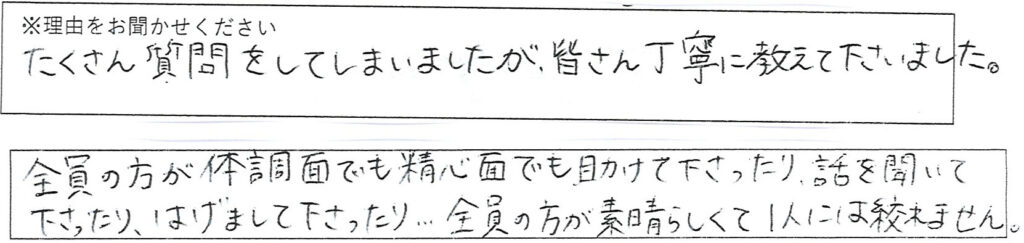 ※理由をお聞かせください
たくさん質問をしてしまいましたが、皆さん丁寧に教えて下さいました。
全員の方が体調面でも精心面でも助けて下さったり、話を聞いて
下さったり、はげまして下さったり…全員の方が素晴らしくて1人には絞れません。